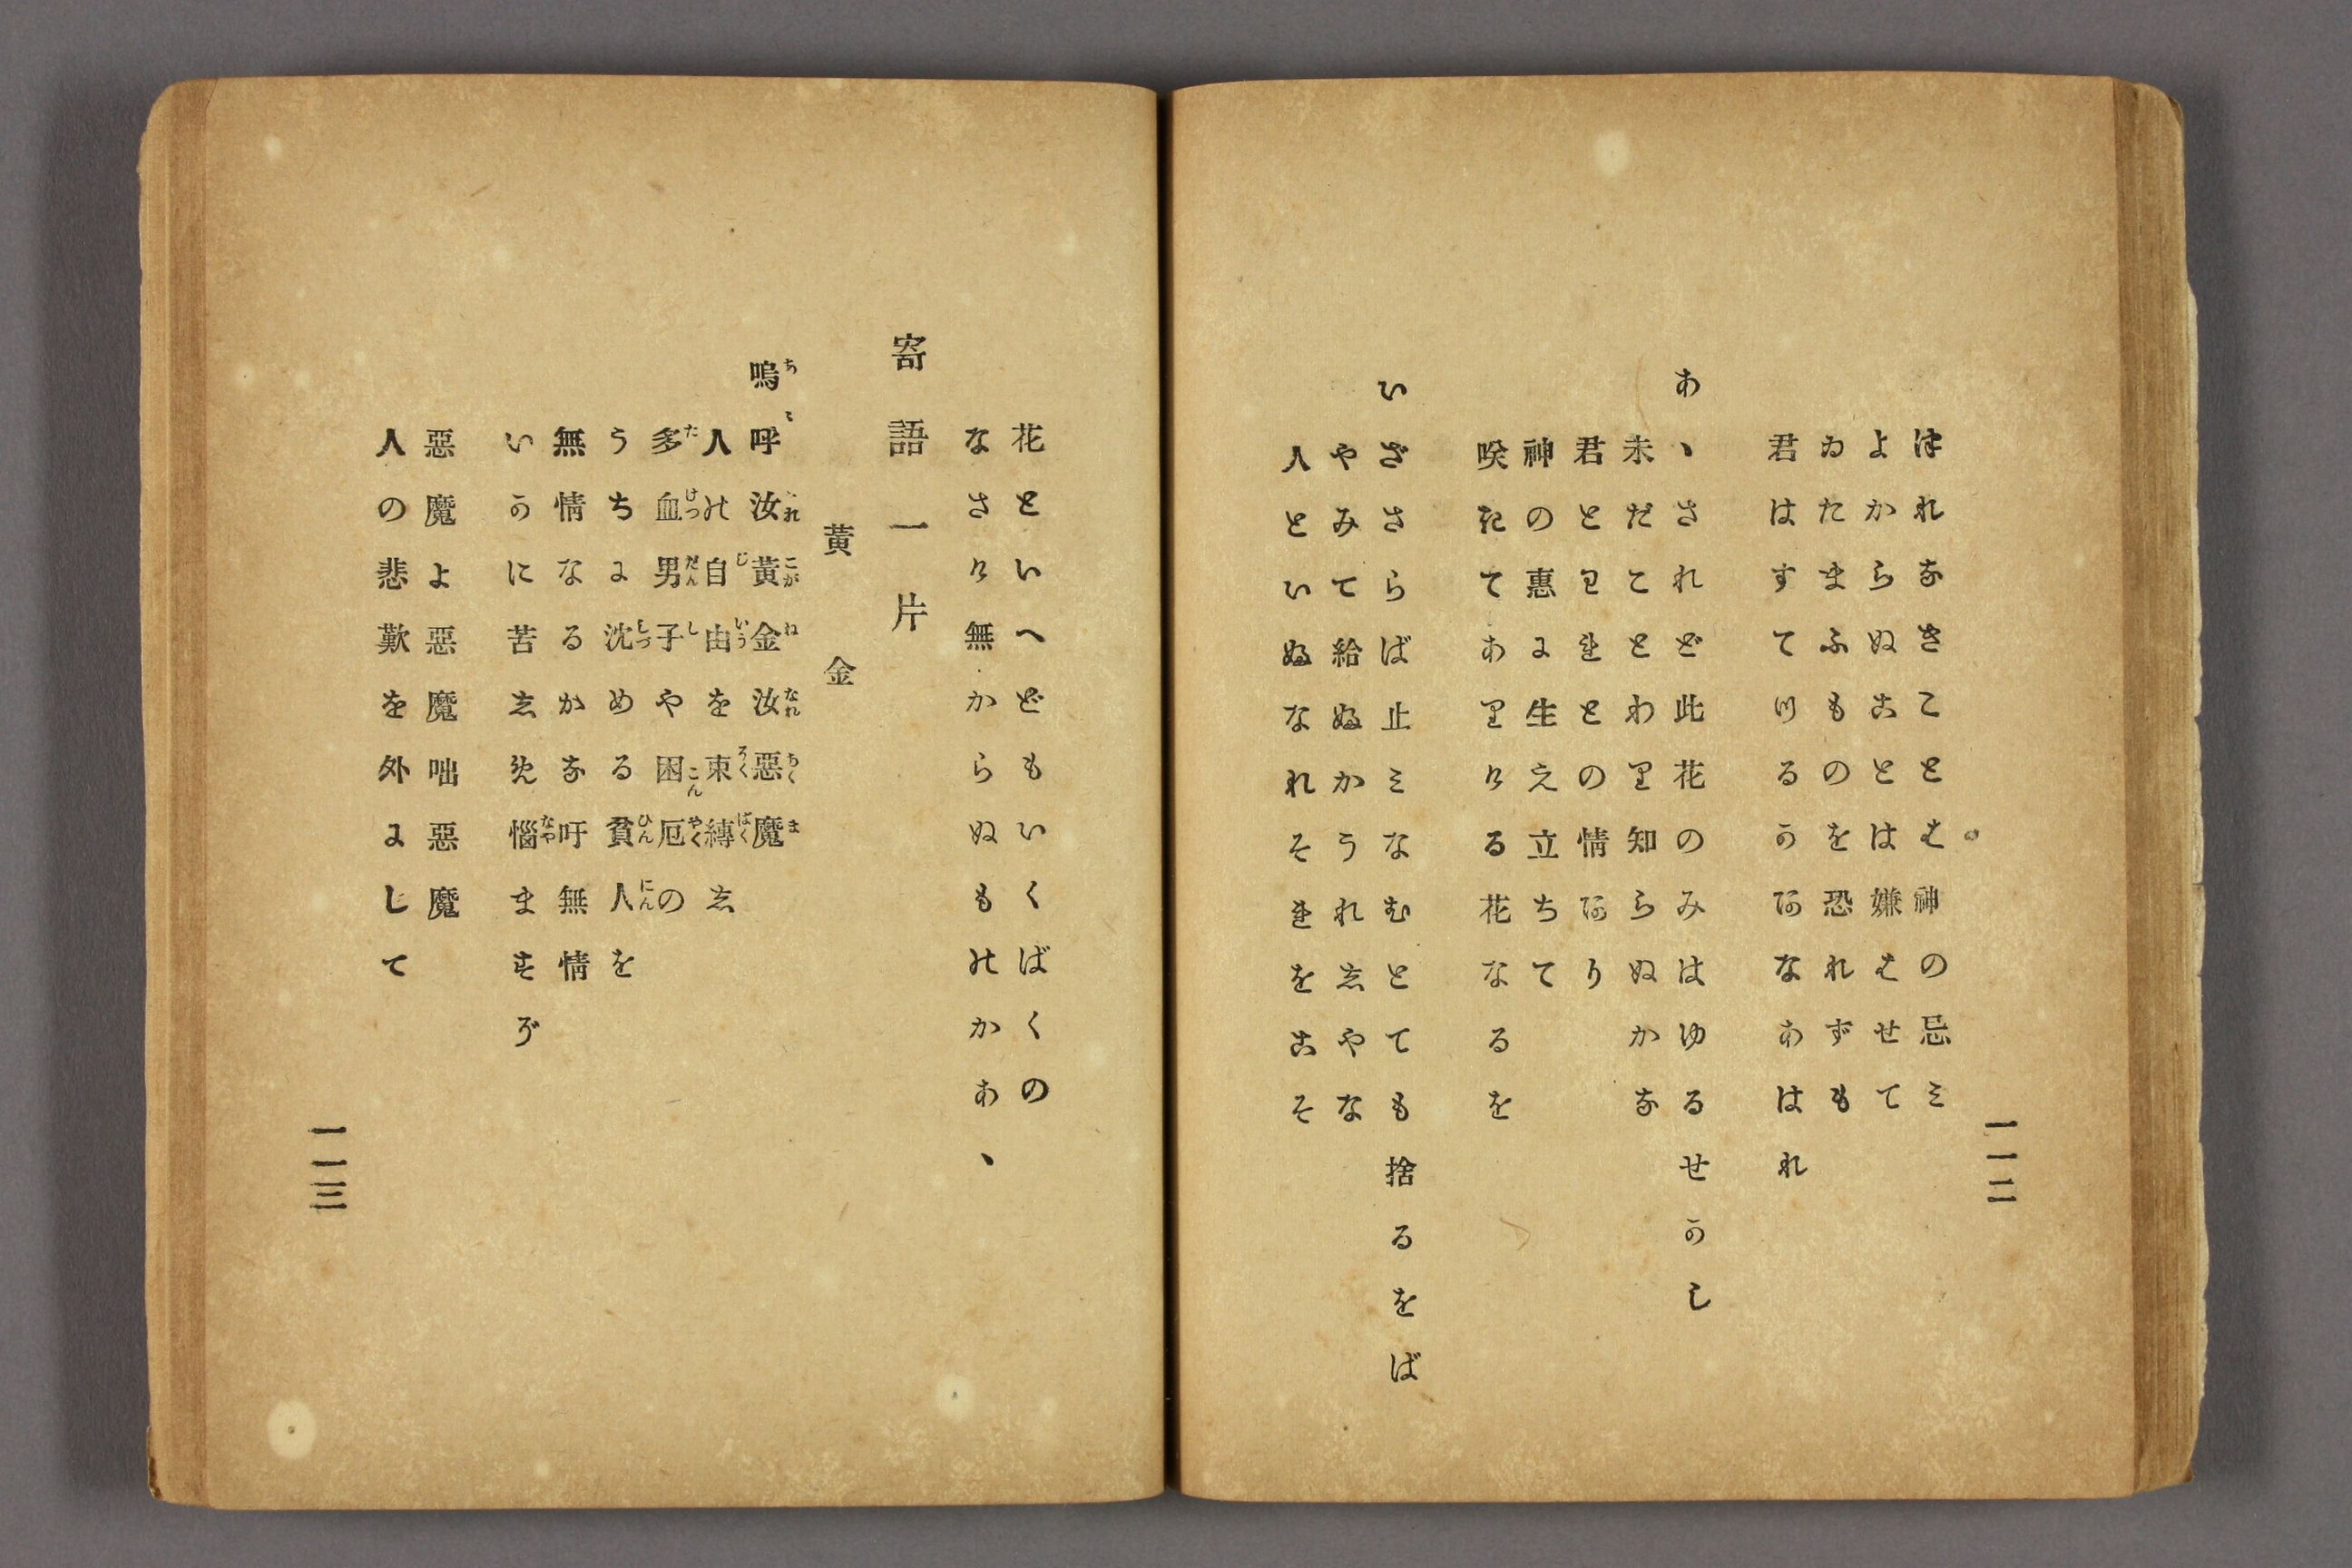 つれなきことは神の忌ミ
よからぬことは嫌はせて
ゐたまふものを恐れずも
君はすてつるかあなあはれ
あゝされど此花のみはゆるせかし
未だことわり知らぬかな
君とわれとの情あり
神の惠に生え立ちて
咲きてありける花なるを
いざさらば止ミなむとても捨るをば
やみて給ふかうれしやな
人といふなれそれをこそ
一一二
花といへどもいくばくの
なさけ無からぬものかあゝ
寄語一片
黄金
嗚呼汝黄金汝惡魔
人の自由を束縛し
多血男子や困厄の
うちに沈める貧人を
無情なるかな吁無情
いかに苦しめ惱ますぞ
惡魔よ惡魔咄惡魔
人の悲歎を外にして
一一三